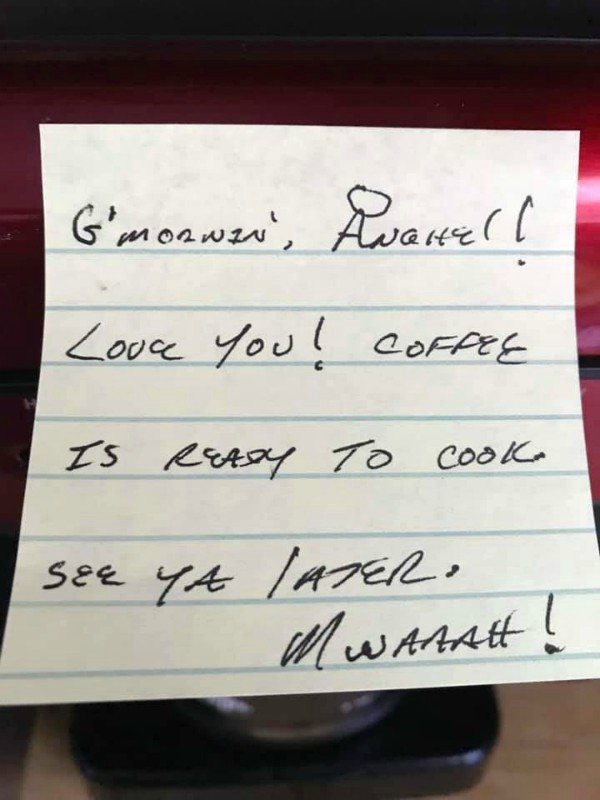 G'MORNIN', ANGHEl!
LOVE YOU! COFFEE
IS READY TO COOK.
SEE YA lATER.
MWAAAH!